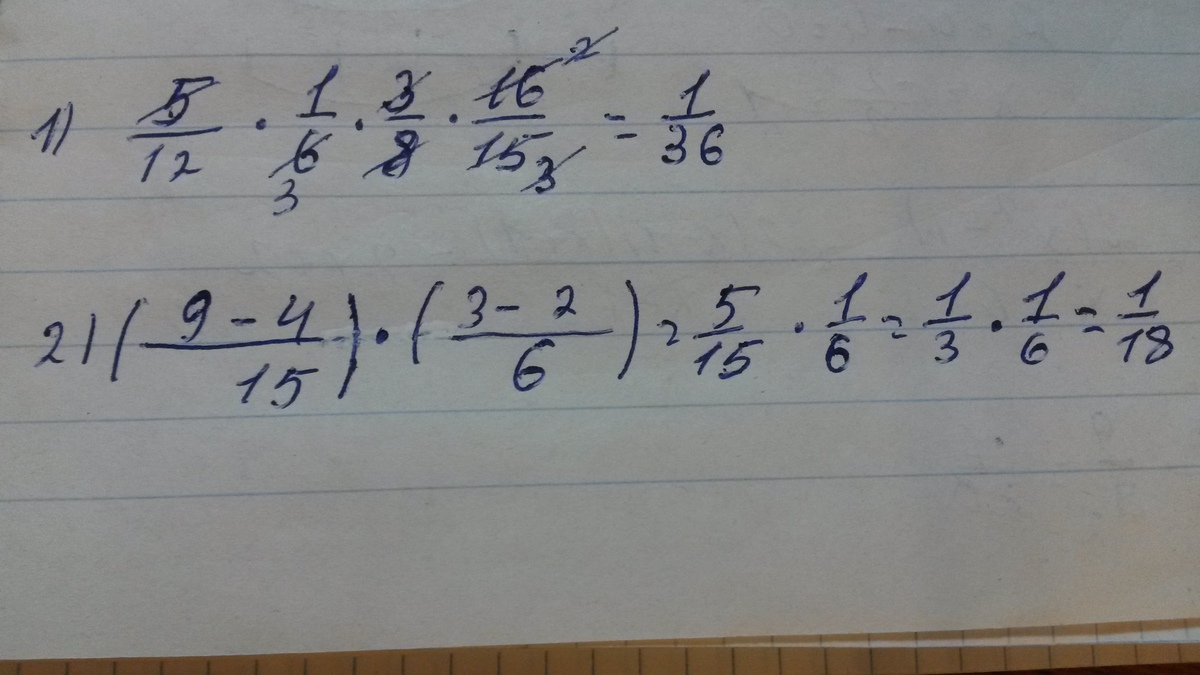 1) 5/12 · 1/6 3 · 3/8 · 16 2/15 3 = 1/36
2) (9 - 4/15) · (3 - 2/6) = 5/15 · 1/6 = 1/3 · 1/6 = 1/18